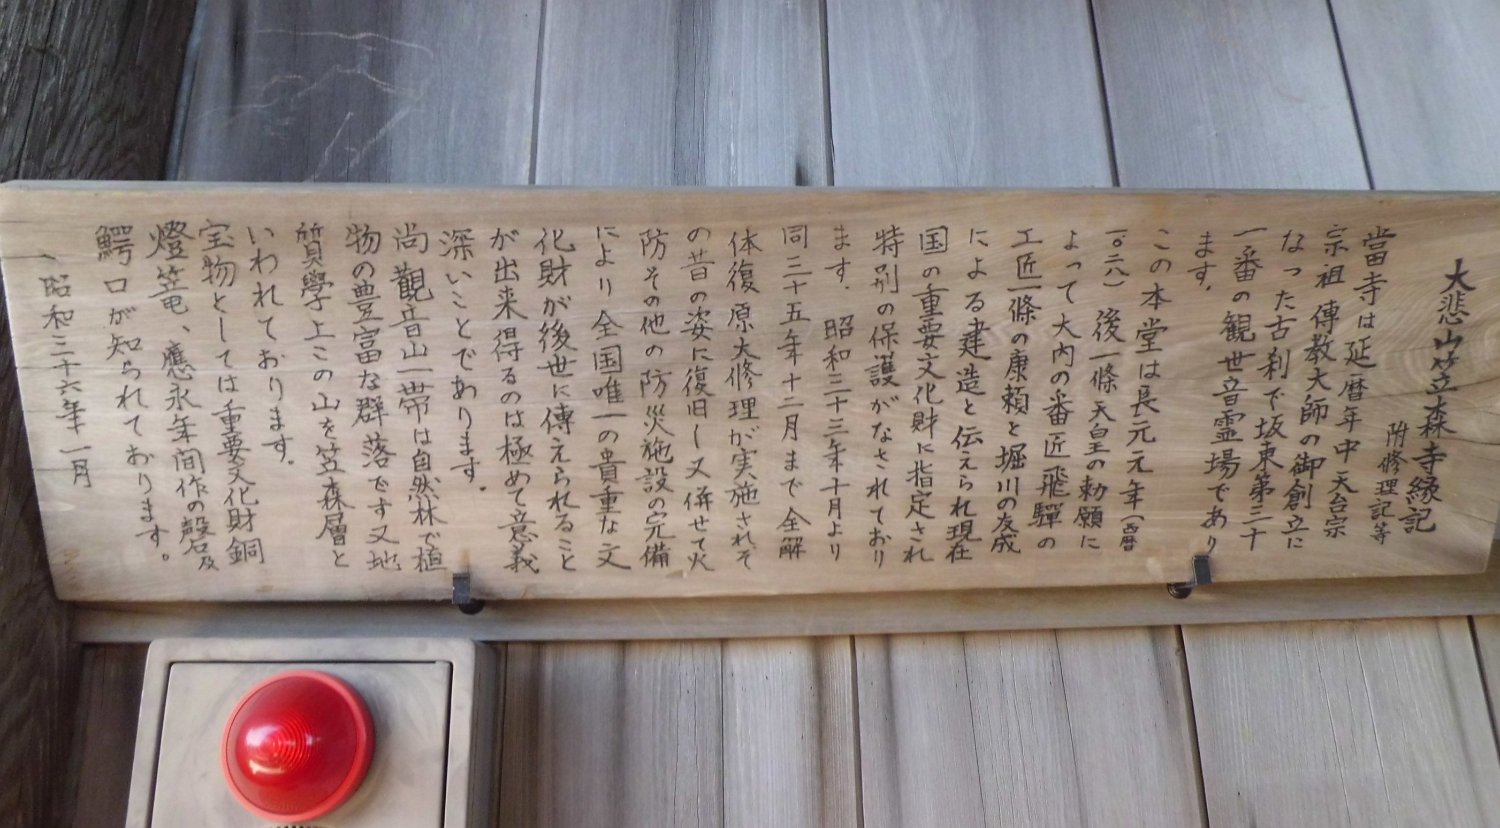 大悲山笠森寺縁記
附修理記等
當寺は延暦年中 天台宗
宗祖 傳教大師の御創立に
なった古刹で坂東第三十
一番の観世音霊場であり
ます．
この本堂は長元元年（西暦
一〇二八）後一條天皇の勅願に
よって大内の番匠飛騨の
工匠一條の康頼と堀川の友成
による建造と伝えられ現在
国の重要文化財に指定され
特別の保護がなされており
ます．昭和三十三年十月より
同三十五年十二月まで全解
体復原大修理が実施されそ
の昔の姿に復旧し又併せて火
防その他の防災施設の完備
により全国唯一の貴重な文
化財が後世に傳えられること
が出来得るのは極めて意義
深いことであります．
尚觀音山一帯は自然林で植
物の豊富な群落です又地
質學上この山を笠森層と
いわれております．
宝物としては重要文化財銅
燈篭、應永年间作の磬石及
鰐口が知られております。
、昭和三十六年一月